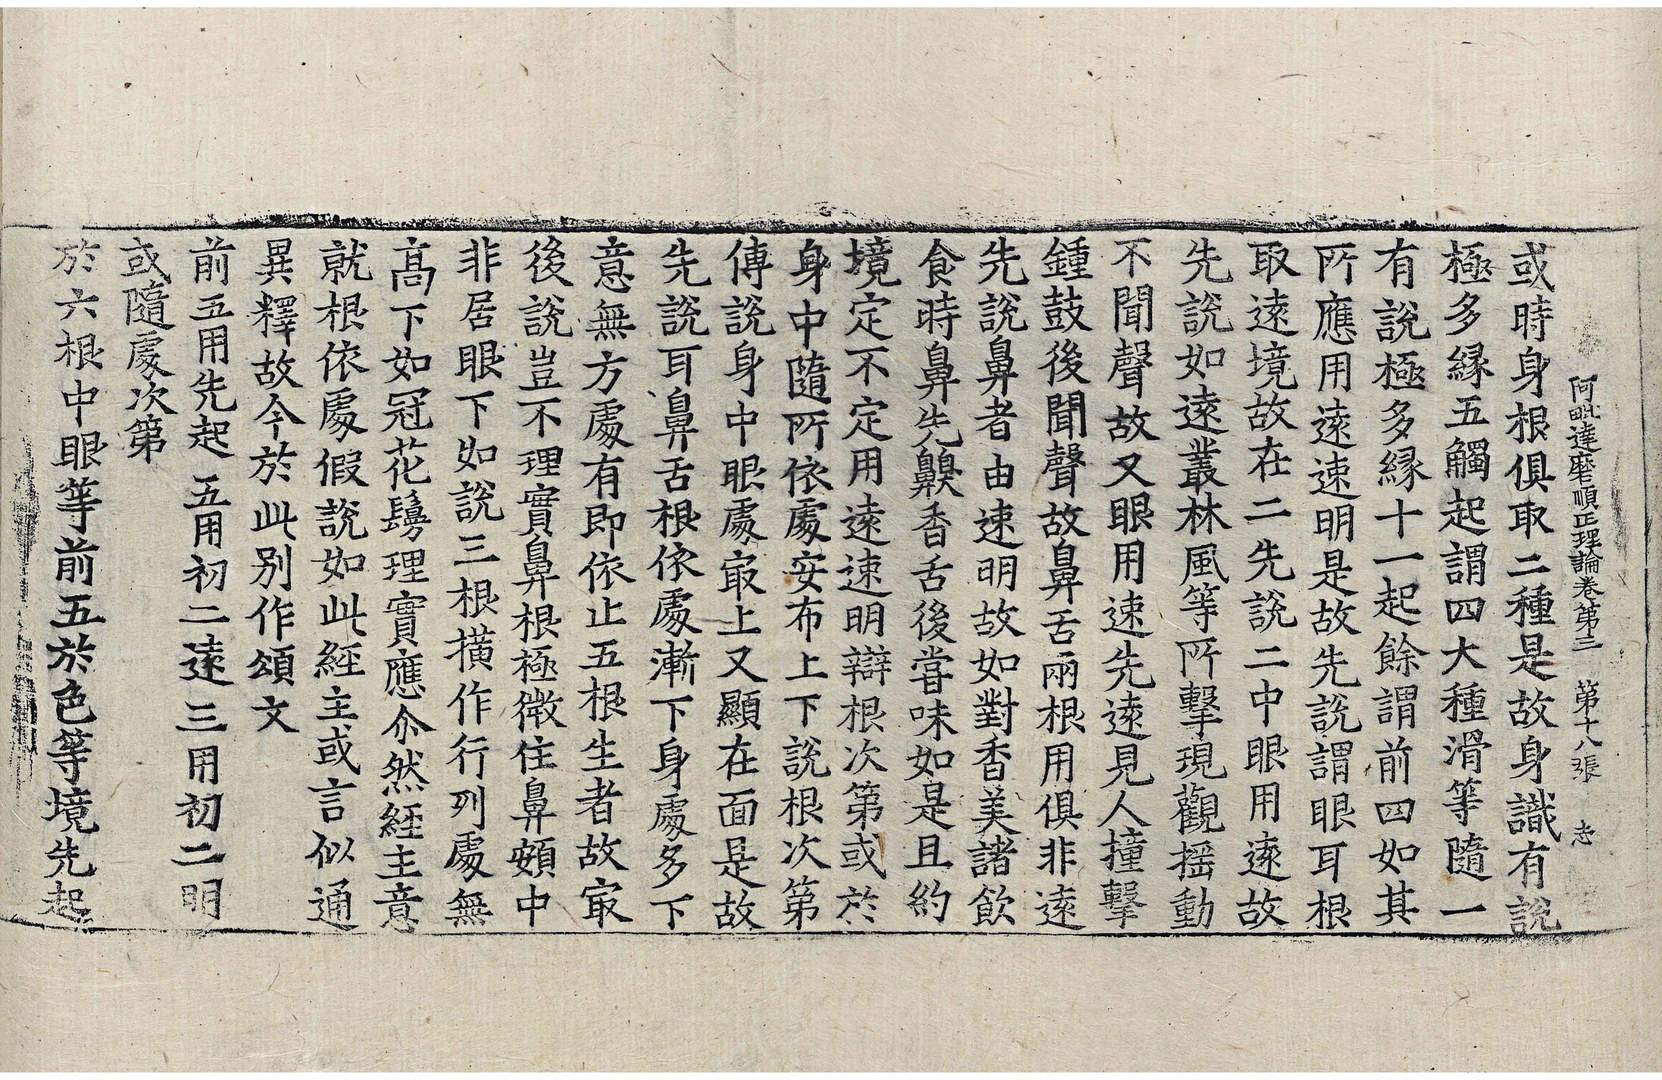 阿毗達磨順正理論卷第三　第十八張　志
或時身根俱取二種是故身識有說
極多緣五觸起謂四大種滑等隨一
有說極多緣十一起餘謂前四如其
所應用遠速明是故先說謂眼耳根
取遠境故在二先說二中眼用遠故
先說如遠叢林風等所擊現觀搖動
不聞聲故又眼用速先遠見人撞擊
鍾鼓後聞聲故鼻舌兩根用俱非遠
先說鼻者由速明故如對香美諸飲
食時鼻先齅香舌後甞味如是且約
境定不定用遠速明辯根次第或於
身中隨所依處安布上下說根次第
傳說身中眼處㝡上又顯在面是故
先說耳鼻舌根依處漸下身處多下
意無方處有即依止五根生者故㝡
後說豈不理實鼻根極微住鼻頞中
非居眼下如說三根撗作行列處無
高下如冠花鬘理實應尒然經主意
就根依處假說如此經主或言似通
異釋故今於此別作頌文
前五用先起　五用初二遠　三用初二明
或隨處次第
於六根中眼等前五於色等境先起